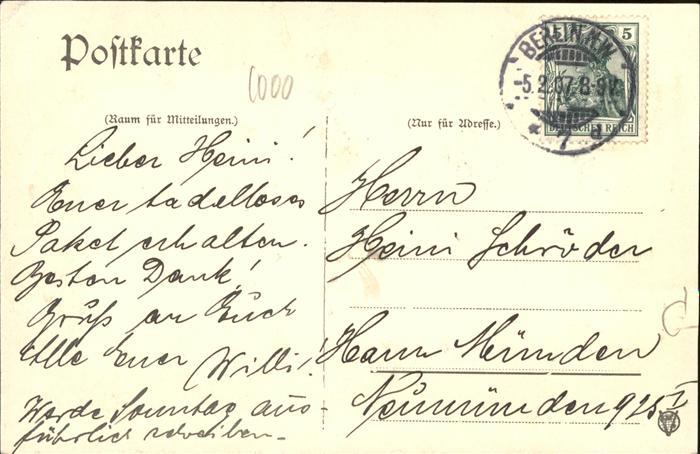 Postkarte
1000
(Raum für Mitteilungen.)
Lieber Heini!
Euer tadelloses
Paket erhalten.
Besten Dank!
Gruß an Euch
Alle Euer Willi!
Werde Sonntag aus-
führlich schreiben.
(Nur für Adresse.)
Herrn
Heini Schröder
Hann Münden
Neumünden 925 I
BERLIN N.W.
5.2.07. 8-9V.
7
5
DEUTSCHES REICH